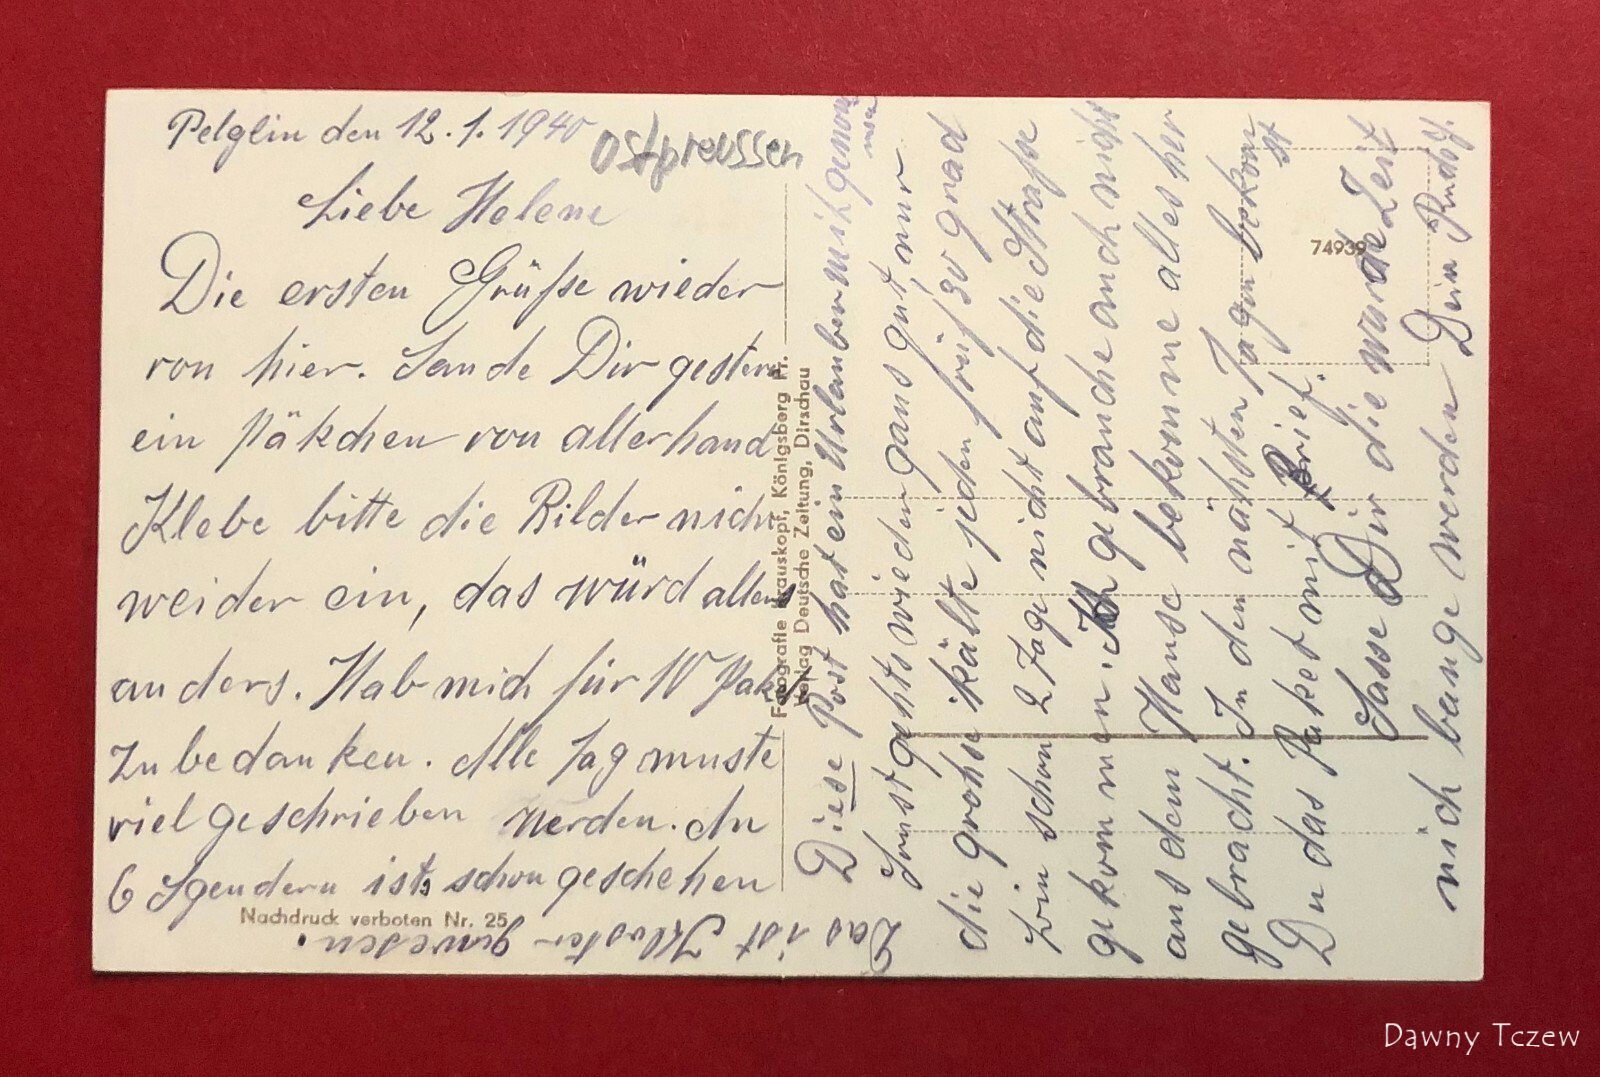 Pelglin den 12.1.1940
Ostpreussen
Liebe Helene
Die ersten Grüße wieder
von hier. Sande Dir gestern
ein Päkchen von allerhand
Klebe bitte die Bilder nicht
weider ein, das würd alles
anders. Hab mich für 10 Pak
zu bedanken. Alle Tag muste
viel geschrieben werden. An
6 Spendern ists schon geschehen
Das ist Kloster gewesen.
Nachdruck verboten Nr. 25
Fotografie Krauskopf, Königsberg Pr.
Verlag Deutsche Zeitung, Dirschau
74939
Diese Post hat ein Urlauber mitgenom
men
Sonst gehts wieder ganz gut nur
die grohse kälte jeden früh 30 grad
bin schon 2 Tage nicht auf die Straße
gekommen. Ich gebrauche auch nicht
aus dem Hause bekomme alles her
gebracht. In den nähsten Tagen bekom
st
Du das Paket mit Brief.
Lasse Dir die Zeit
nich bange werden Dein Rudolf.
Dawny Tczew